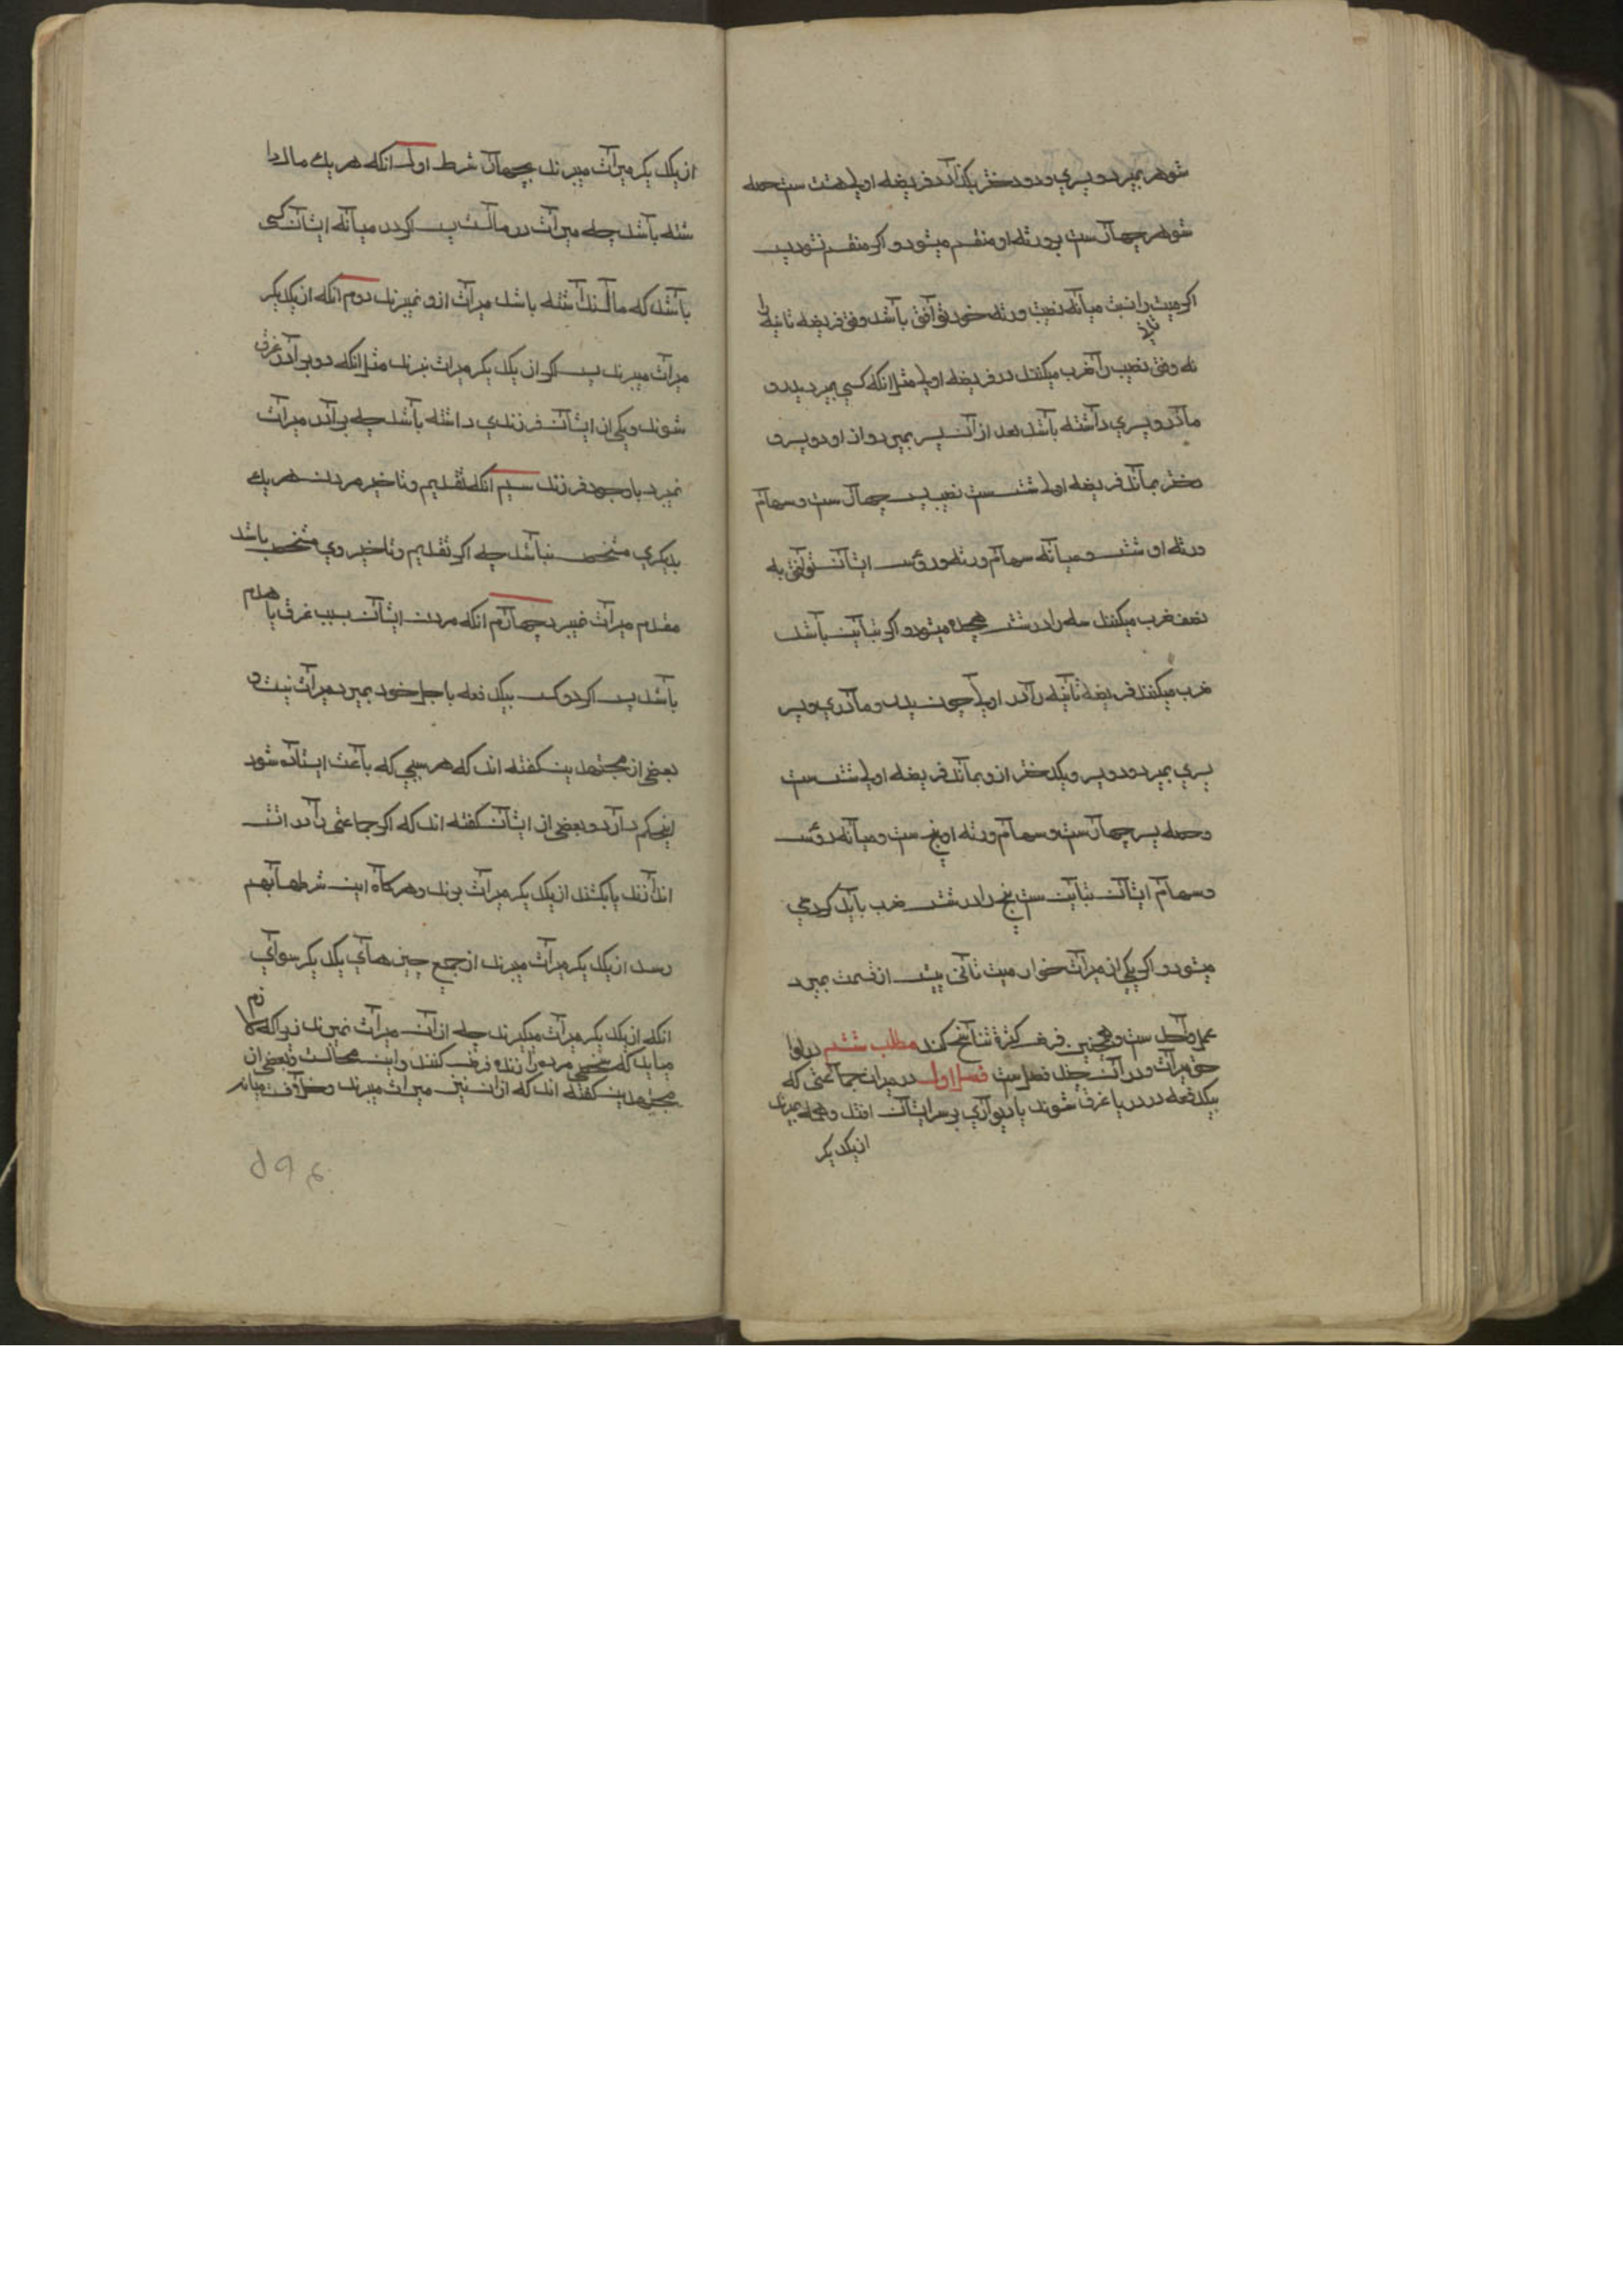 شوهر بمیرد و پسری و دو دختر بگذارد فریضه اولی هشت ست حصه
شوهر چهارست بر ورثه او منقسم میشود و اگر منقسم نشود پس
اگر میت را نسبت میانه نصیب ورثه خود توافق باشد وفق فریضه ثانیه را
نه وفق نصیب را ضرب میکنند در فریضه اولی مثل انکه کسی بمیرد پدر و
مادر و پسری داشته باشد بعد از آن پسر بمیرد و از او دو پسر و
دختر بماند فریضه اولی شش ست نصیب پسر چهار ست و سهام
ورثه او شش و میانه سهام ورثه و رؤس ایشان توافق به
نصف ضرب میکنند سه را در شش هجده میشود و اگر تباین باشد
ضرب میکنند فریضه ثانیه را در اولی چون پدر و مادری و پسر
پسری بمیرد و دو پسر و یکدختر ازو بماند فریضه اولی شش ست
و حصه پسر چهارست و سهام ورثه او پنج ست و میانه رؤس
و سهام ایشان تباین ست پنج را در شش ضرب باید کرد سی
میشود و اگر یکی از میراث خوار میت ثانی پیش از قسمت بمیرد
عمل واحد ست و همچنین فرض کثرة تناسخ کند مطلب ششم در لواحق
میراث و در آن چند فصل ست فصل اول در میراث جماعتی که
بیکدفعه در دریا غرق شوند یا دیواری بر سر ایشان افتد و همه بمیرند
از یکدیگر
از یکدیگر میراث میبرند بچهار شرط اول انکه هر یک مال دا
شته باشد چه میراث در مالست پس اگر در میانه ایشان کسی
باشد که مال نداشته باشد میراث ازو نمیبرند دوم انکه از یکدیگر
میراث میبرند پس اگر از یکدیگر میراث نبرند مثل انکه دو برادر غرق
شوند و یکی از ایشان فرزندی داشته باشد چه برادر میراث
نمیبرد با وجود فرزند سیم انکه تقدیم و تاخیر مردن هر یک
بدیگری مشخص نباشد چه اگر تقدیم و تاخیر وی مشخص باشد
مقدم میراث نمیبرد چهارم انکه مردن ایشان بسبب غرق یا هدم
باشد پس اگر دو کس بیکدفعه باجل خود بمیرند میراث نیست و
بعضی از مجتهدین گفته اند که هر سببی که باعث ایستاده شود
این حکم دارد و بعضی از ایشان گفته اند که اگر جماعتی را در اتش
اندازند یا بکشند از یکدیگر میراث برند و هرگاه این شرطها بهم
رسد از یکدیگر میراث میبرند از جمیع چیزهای یکدیگر سوای
انکه از یکدیگر میراث میگیرند چه از آن میراث نمیبرند زیرا که لازم
میاید که شخصی مرده را زنده فرض کنند و این محالست و بعضی از
مجتهدین گفته اند که ازان نیز میراث میبرند و خلاف میانه